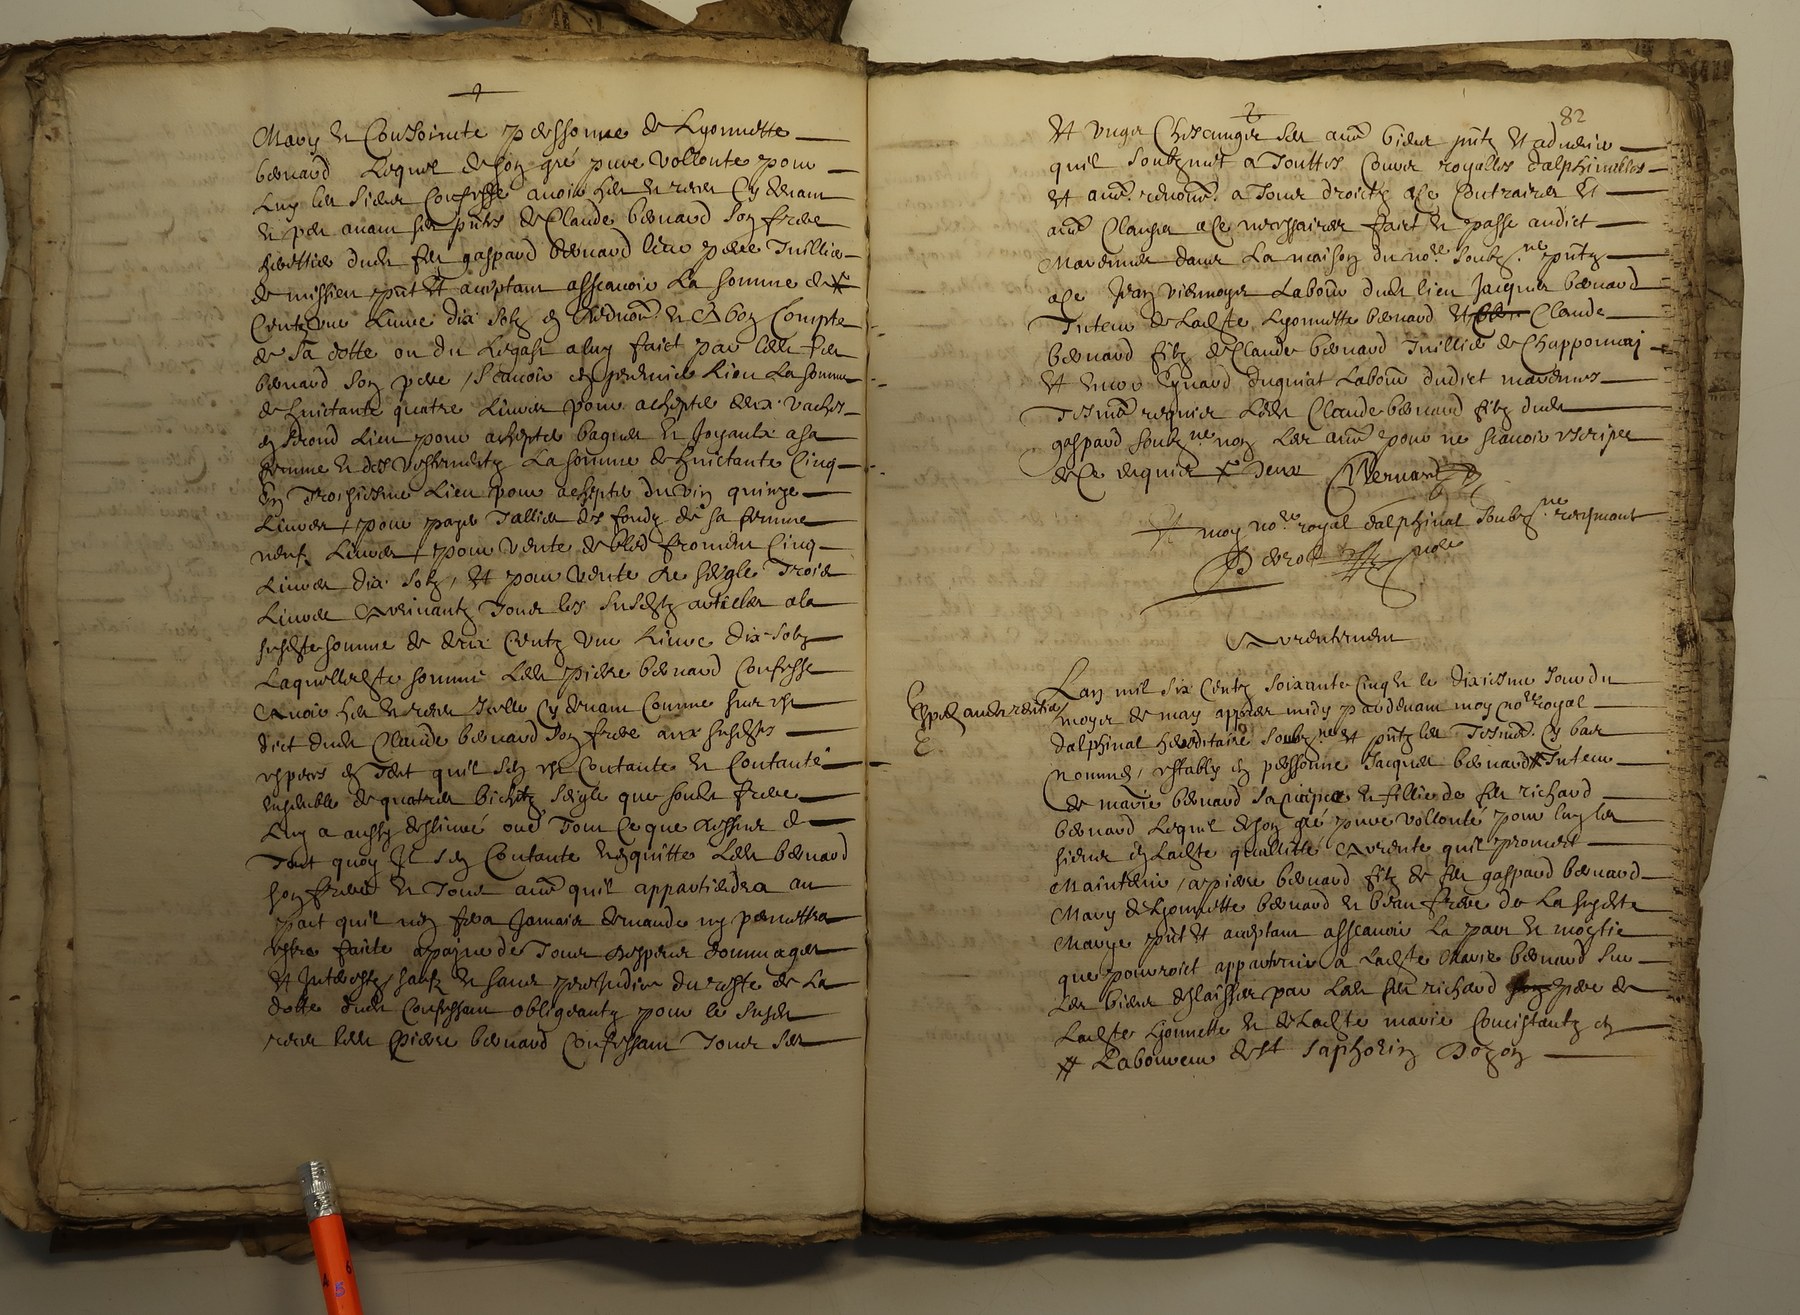 Mary et Conjoincte personne de Lyonnette
bernard Lequel de son gré pure vollonté pour
Luy les sieurs Confesse avoir heu et receu Cy devant
et par avant ses pntes de Claude bernard son frere
herettier dudt feu gaspard bernard leur pere Tuillier
de missieu pnt et acceptant assavoir La somme de
Centz une Livre dix solz en et a bon Compte
de sa dotte ou du Legast a luy faict par ledt feu
bernard son pere / scavoir en premier Lieu La somme
de huictante quatre Livres pour achepter deux vaches
en second Lieu pour achepter bagues et Joyaulx a sa
femme et des vestementz La somme de huictante Cinq
En Troisiesme Lieu pour achepter du vin quinze
Livres / pour payer Tallies des fondz de sa femme
neuf Livres / pour vente de bled froment Cinq
Livres dix solz / Et pour vente de seigle Trois
Livres Arrivantz Tous les susdtz articles a la
susdte somme de deux Centz une Livre dix solz
Laquelle dte somme Ledt pierre bernard Confesse
Avoir heu et receu Icelle Cy devant Comme sus est
dict dudt Claude bernard son frere aux susdtes
espers en Tant quil s'en est Contanté et Contante
ensemble de quatres bichetz seigle que sondt frere
Luy a aussy deslivré oued Tout Ce que dessus de
Tout quoy Il s'en Contante et en quitte Ledt bernard
son frere et Tous autres quil appartiendra au
pact quil n'en fera Jamais demande ny permettra
estre faite a payne de Tous despens dommages
Et Interestz sauf et sans prejudice du reste de La
dotte dudt Confessant obligeantz pour le susdt
receu ledt pierre bernard Confessant Tous ses
2
82
Et ungz Chescungz ses autres biens pntz Et advenir
quil soubzmet a Touttes Cours royalles dalphinalles
Et autres renonce a Tous droictz a Ce Contraires Et
autres Clauses a Ce necessaires faict et passé audict
Marennes dans La maison du nore soubzne pntz
a Ce Jean viennoys Labour dudt lieu Jacques bernard
Tuteur de Ladte Lyonnette bernard Et Claude
bernard filz de Claude bernard Tuillier de Chapponnay
Et encor Eynard duquiat Labour dudict marennes
Tesmoins requis Ledt Claude bernard filz dudt
gaspard soubzne non Les autres pour ne scavoir escripre
de Ce enquis deux Bernard
Et moy nore royal dalphinal soubzne recepvant
Derol nore
Arrentement
Expedié audt rentier
Lan mil six Centz soixante Cinq et le dixiesme Jour du
moys de may appres midy pardevant moy nore royal
dalphinal hereditaire soubzne Et pntz les Tesmoins Cy bas
nommes / estably en personne Jacques bernard # Tuteur
de marie bernard sa niepce et fillie de feu richard
bernard Lequel de son gré pure vollonté pour luy les
sieurs en Ladte quallité Arrente quil promect
Maintenir / a pierre bernard filz de feu gaspard bernard
Mary de Lyonnette bernard et beau frere de La susdte
Marye pnt Et acceptant assavoir La part et moytie
que pourroict appartenir a Ladte Marie bernard sur
Les biens deslaissés par Ledt feu richard pere de
Ladte Lyonnette et de Ladte marie Concistantz en
# Laboureur de st Saphorin Dozon